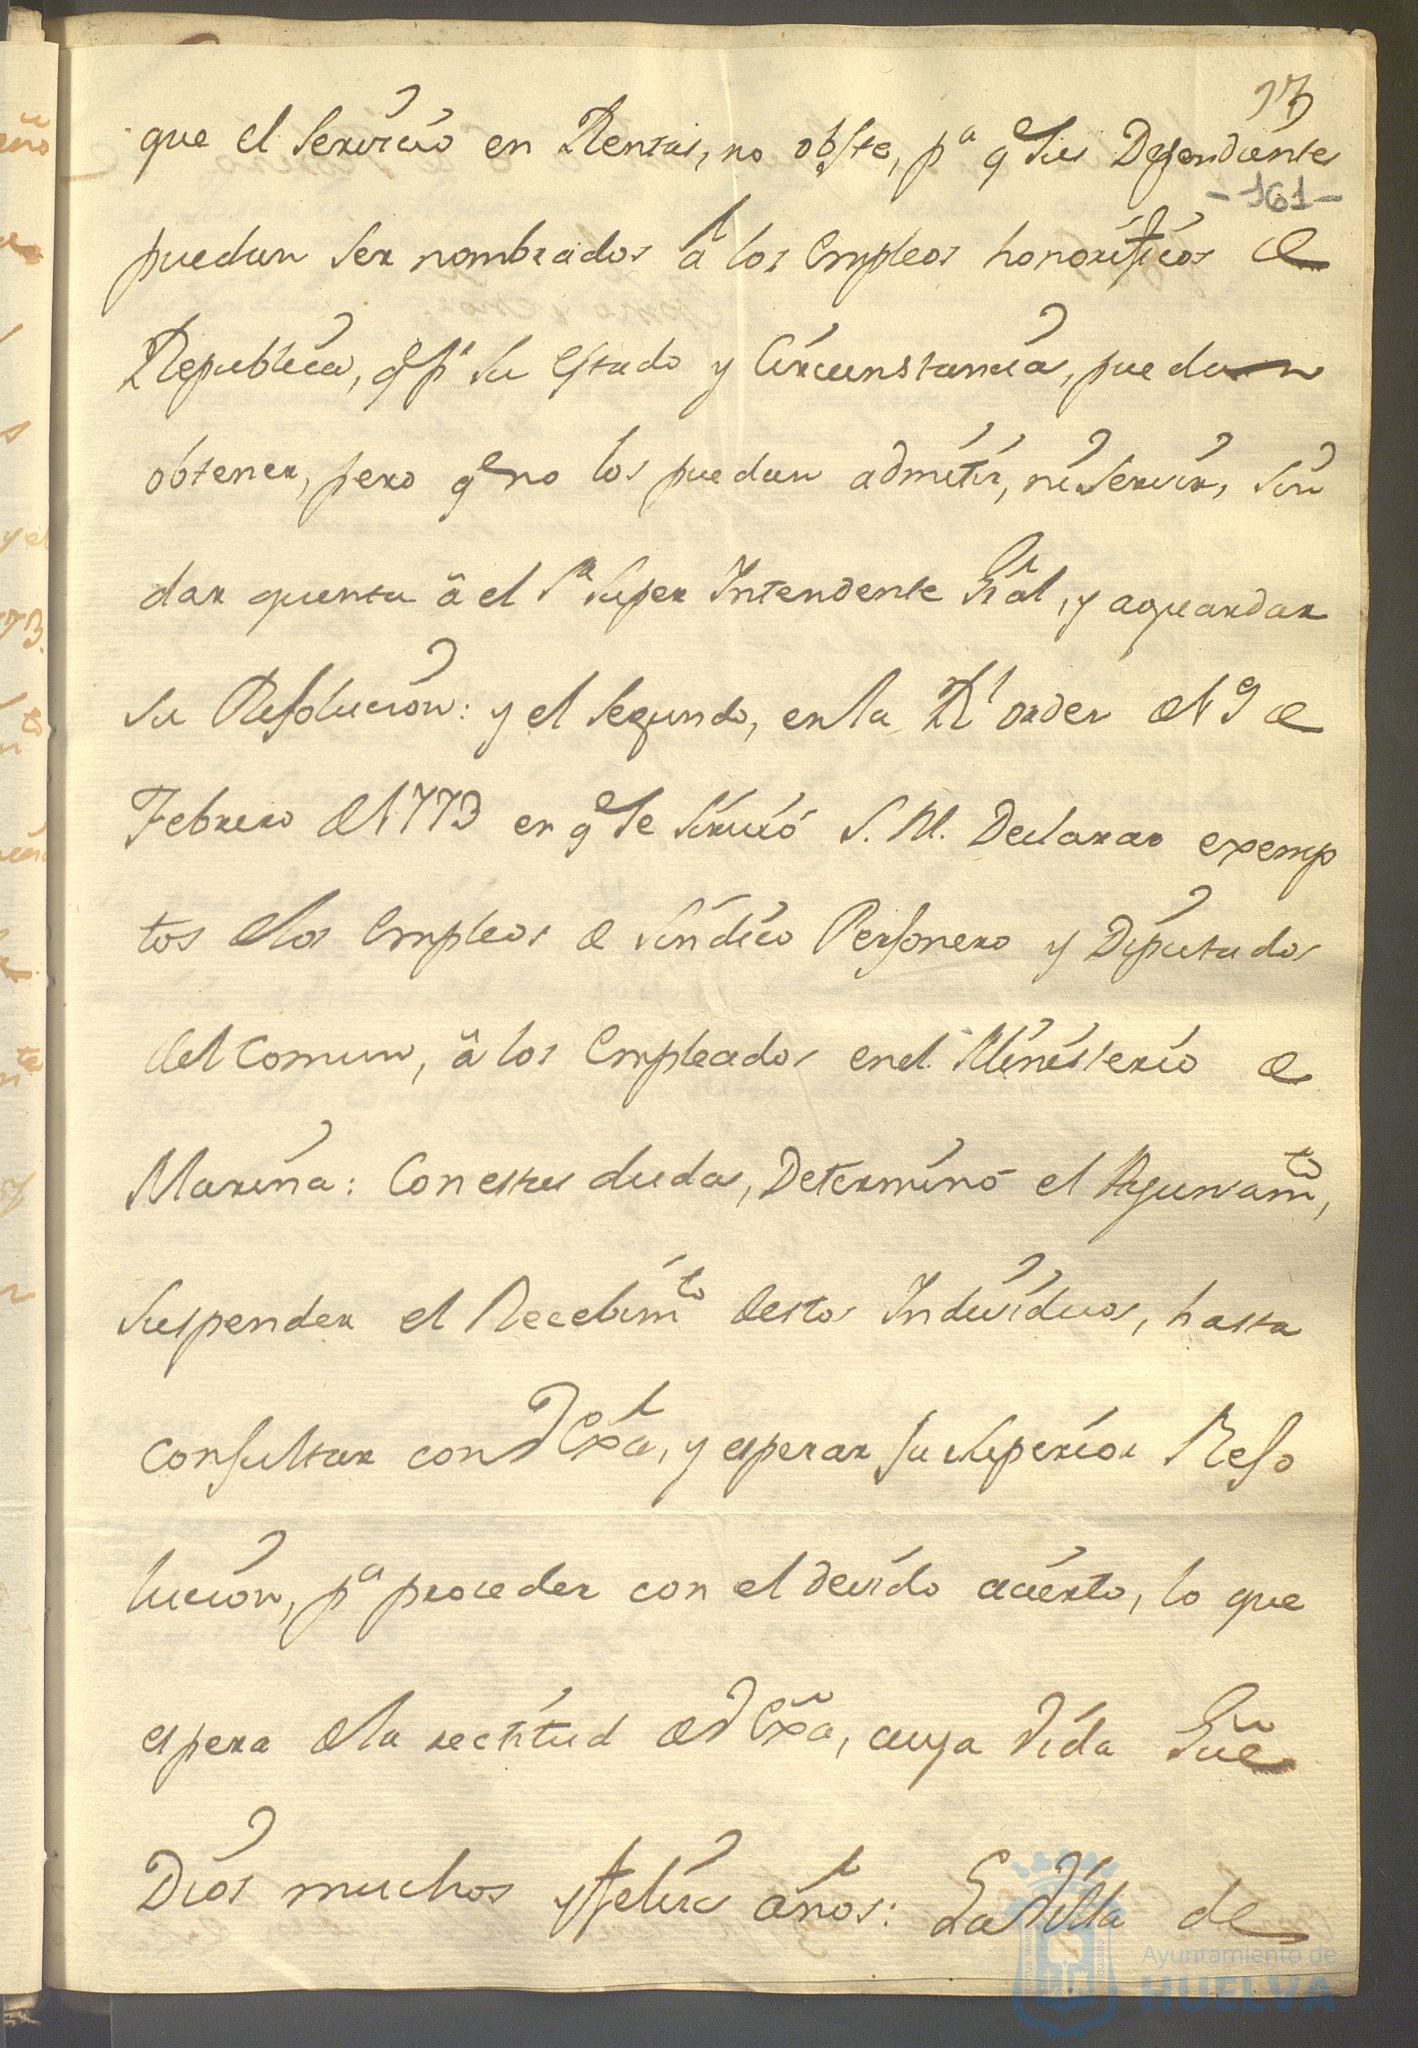 17
que el servicio en Rentas, no obste, pª qe sus Dependientes
-161-
puedan ser nombrados â los empleos honorificos de
Republica, qe pr su estado y Circunstancia, puedan
obtener, pero qe no los puedan admitir, ni servir, sin
dar quenta â el Sr super Intendente Gral, y aguardar
su Resolucion: y el segundo, en la Rl orden del 9 de
Febrero del 773 en qe se sirvió S. M. Declarar exemp
tos de los empleos de sindico Personero y Diputados
del comun, â los empleados en el Ministerio de
Marina: Con estas dudas, Determinó el Ayuntamto,
suspender el Recebimto destos Individuos, hasta
consultar con V Exa, y esperar su superior Reso
lucion, pª proceder con el devido acierto, lo que
espera de la rectitud de V Exa, cuya vida Gue
Dios muchos y felices años: La Villa de
Ayuntamiento de
HUELVA